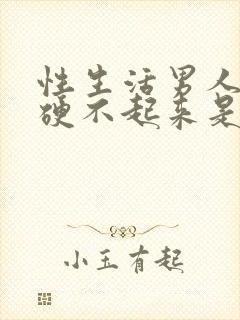 性生活男人
硬不起来是
小玉有起